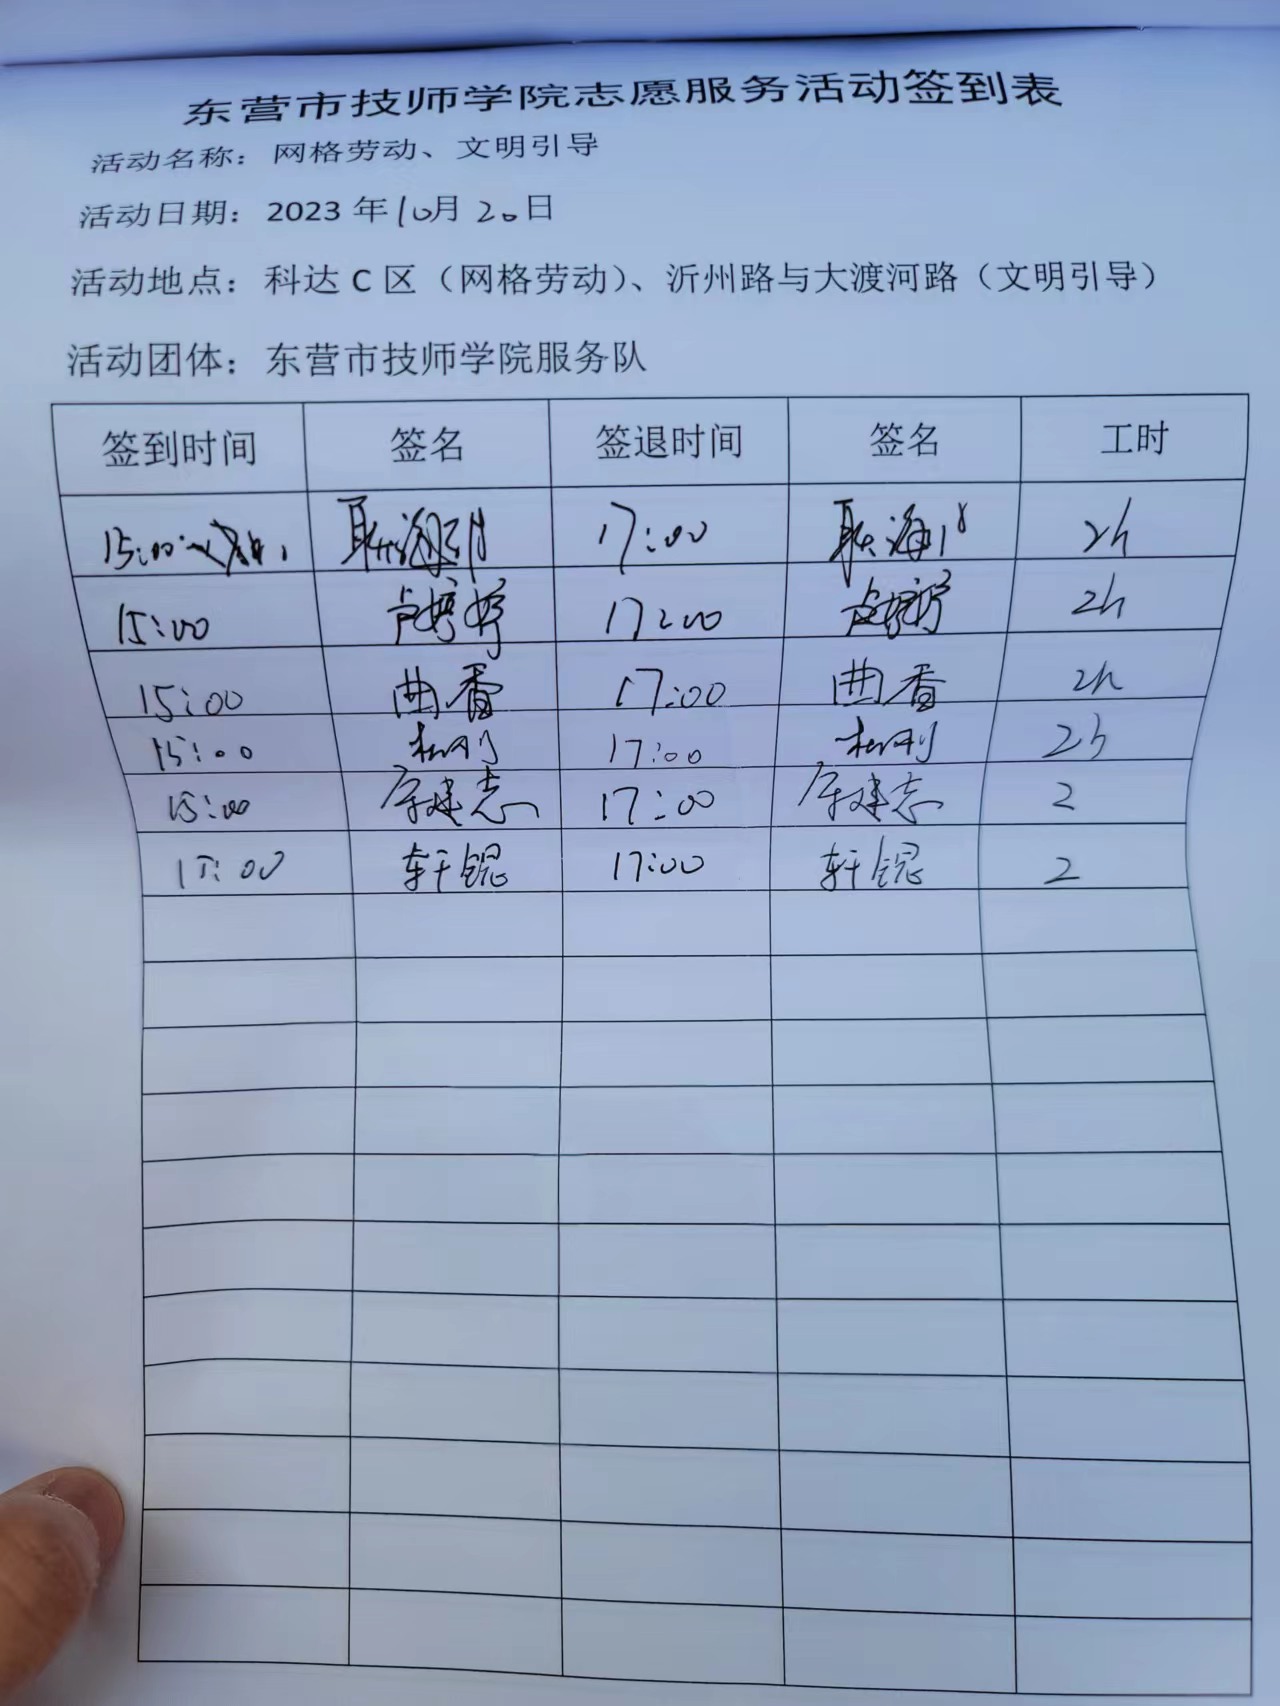 东营市技师学院志愿服务活动签到表
活动名称：网格劳动、文明引导
活动日期：2023 年10月20日
活动地点：科达 C 区（网格劳动）、沂州路与大渡河路（文明引导）
活动团体：东营市技师学院服务队
签到时间 签名 签退时间 签名 工时
15:00 17:00 2h
15:00 卢婷婷 17:00 卢婷婷 2h
15:00 曲香 17:00 曲香 2h
15:00 杜刚 17:00 杜刚 2h
15:00 建志 17:00 建志 2
15:00 轩锟 17:00 轩锟 2